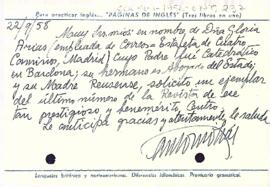 Para practicar inglés... "PAGINAS DE INGLÉS" (Tres libros en uno)
22/9/58
Muy Sr. mío: en nombre de Dña Gloria
Arias (empleada de Correos Estafeta de Cuatro
Caminos, Madrid) cuyo Padre fué Catedrático
en Barcelona; su hermano es Abogado del Estado;
y su Madre Reusense, solicito un ejemplar
del último número de la Revista de ese
tan prestigioso y benemérito Centro.
Le anticipa gracias y atentamente le saluda
Lenguajes británico y norteamericano. Diferencias idiomáticas. Prontuario gramatical.